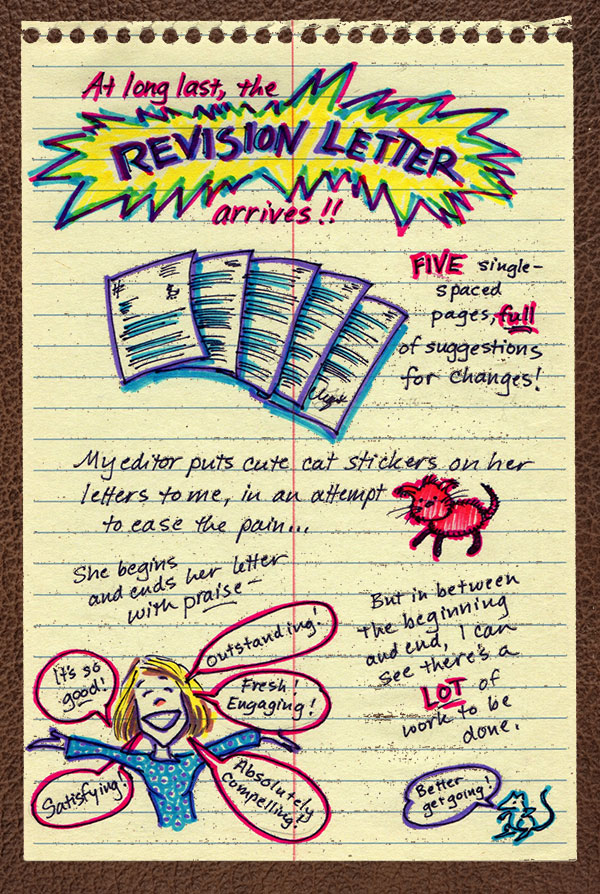 At long last, the
REVISION LETTER
arrives!!
FIVE single-
spaced
pages, full
of suggestions
for changes!
My editor puts cute cat stickers on her
letters to me, in an attempt
to ease the pain...
She begins
and ends her letter
with praise—
It's so
good!
Outstanding!
Fresh!
Engaging!
Satisfying
Absolutely
compelling!
But in between
the beginning
and end, I can
see there's a
LOT of
work to be
done.
Better
get going!